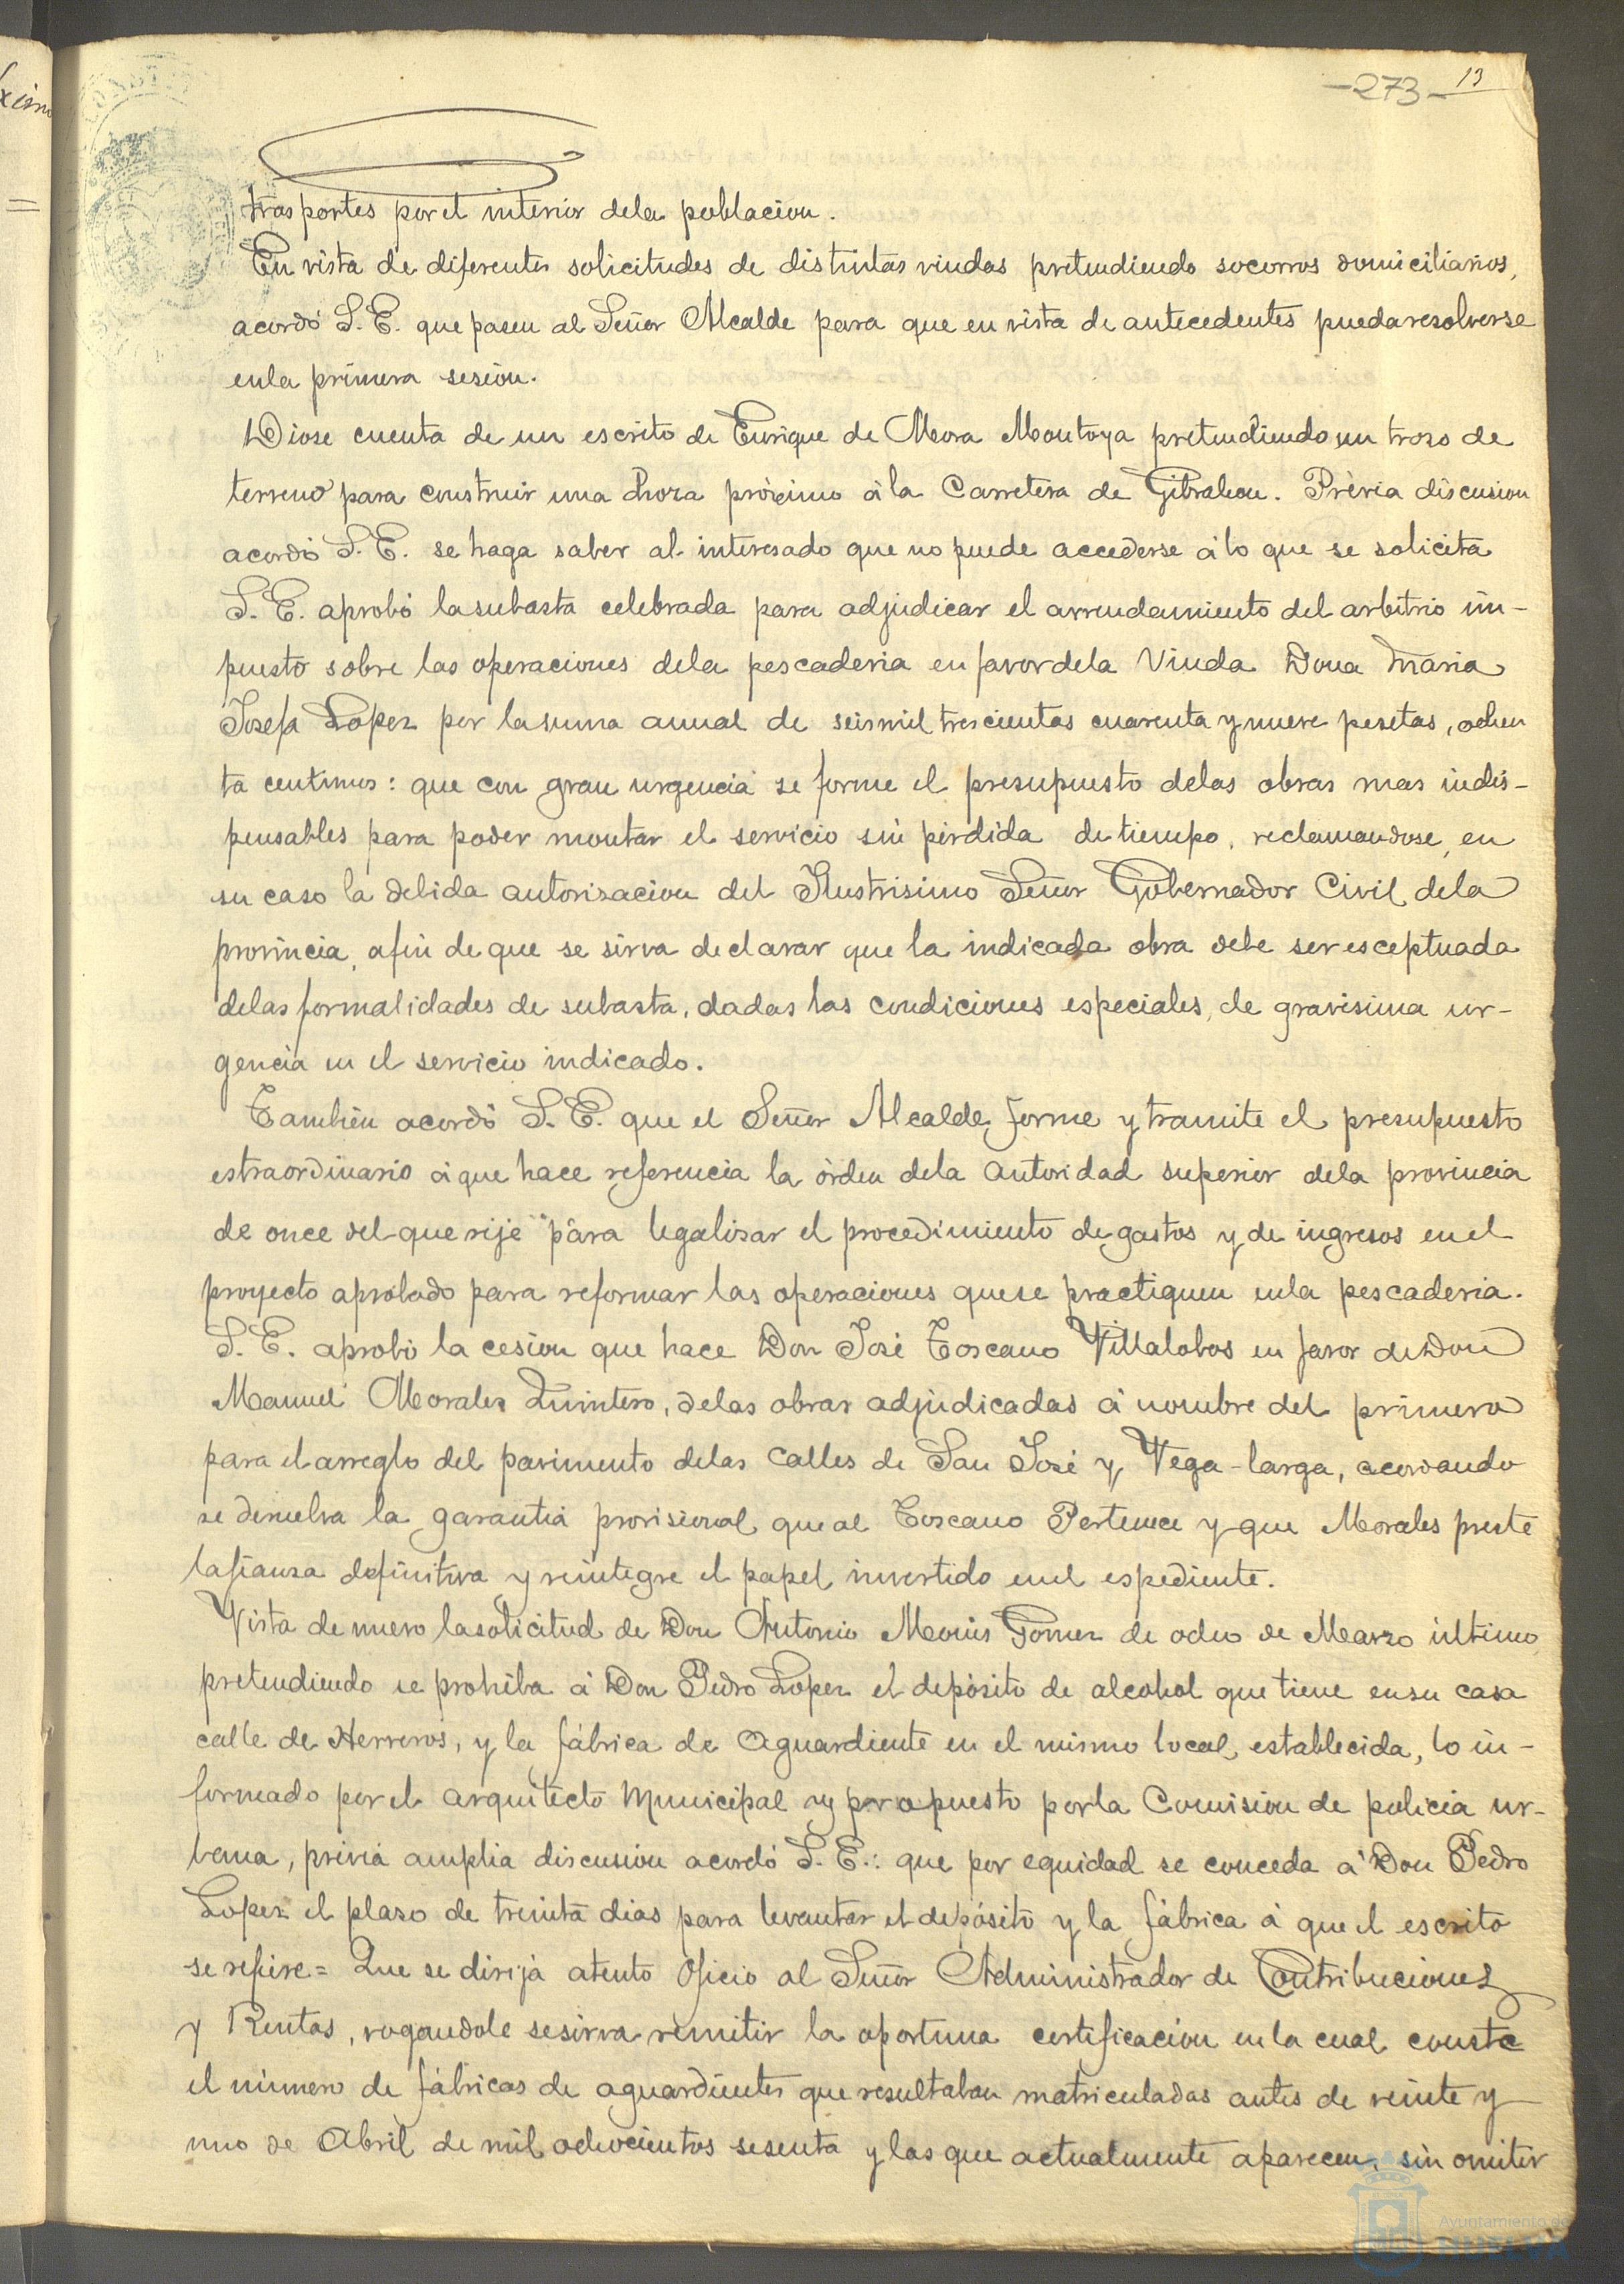 xim
=
-273- 13
trasportes por el interior dela poblacion.
En vista de diferentes solicitudes de distintas viudas pretendiendo socorros domiciliarios,
acordó S. E. que pasen al Señor Alcalde para que en vista de antecedentes pueda resolverse
enla primera sesion.
Diose cuenta de un escrito de Enrique de Mora Montoya pretendiendo un trozo de
terreno para construir una choza próximo á la Carretera de Gibraleon. Prévia discusion
acordó S. E. se haga saber al interesado que no puede accederse á lo que se solicita
S. E. aprobó la subasta celebrada para adjudicar el arrendamiento del arbitrio im-
puesto sobre las operaciones dela pescaderia en favor dela Viuda Doña Maria
Josefa Lopez por la suma anual de seis mil trescientas cuarenta y nueve pesetas, ochen
ta centimos: que con gran urgencia se forme el presupuesto delas obras mas indis-
pensables para poder montar el servicio sin pérdida de tiempo, reclamandose, en
su caso la debida autorizacion del Ilustrisimo Señor Gobernador Civil dela
provincia, afin de que se sirva declarar que la indicada obra debe ser esceptuada
delas formalidades de subasta, dadas las condiciones especiales, de gravisima ur-
gencia en el servicio indicado.
Tambien acordó S. E. que el Señor Alcalde forme y tramite el presupuesto
estraordinario á que hace referencia la órden dela autoridad superior dela provincia
de once del que rije para legalizar el procedimiento de gastos y de ingresos en el
proyecto aprobado para reformar las operaciones quese practiquen enla pescaderia.
S. E. aprobó la cesion que hace Don José Toscano Villalobos en favor de Don
Manuel Morales Quintero, delas obras adjudicadas á nombre del primero
para el arreglo del pavimento delas calles de San José y Vega-larga, acordando
se devuelva la garantia provisional que al Toscano Pertenece y que Morales preste
la fianza definitiva y reintegre el papel invertido enel espediente.
Vista de nuevo la solicitud de Don Antonio Monis Gomez de ocho de Marzo último
pretendiendo se prohiba á Don Pedro Lopez el depósito de alcohol que tiene en su casa
calle de Herreros, y la fábrica de aguardiente en el mismo local establecida, lo in-
formado por el arquitecto Municipal y propuesto porla Comision de policia ur-
bana, prévia amplia discusion acordó S. E.: que por equidad se conceda á Don Pedro
Lopez el plazo de treinta dias para levantar el depósito y la fábrica á que el escrito
se refiere = Que se dirija atento oficio al Señor Administrador de Contribuciones
y Rentas, rogandole sesirva remitir la oportuna certificacion en la cual conste
el número de fábricas de aguardientes que resultaban matriculadas antes de veinte y
uno de Abril de mil ochocientos sesenta y las que actualmente aparecen, sin omitir
Ayuntamiento de
HUELVA